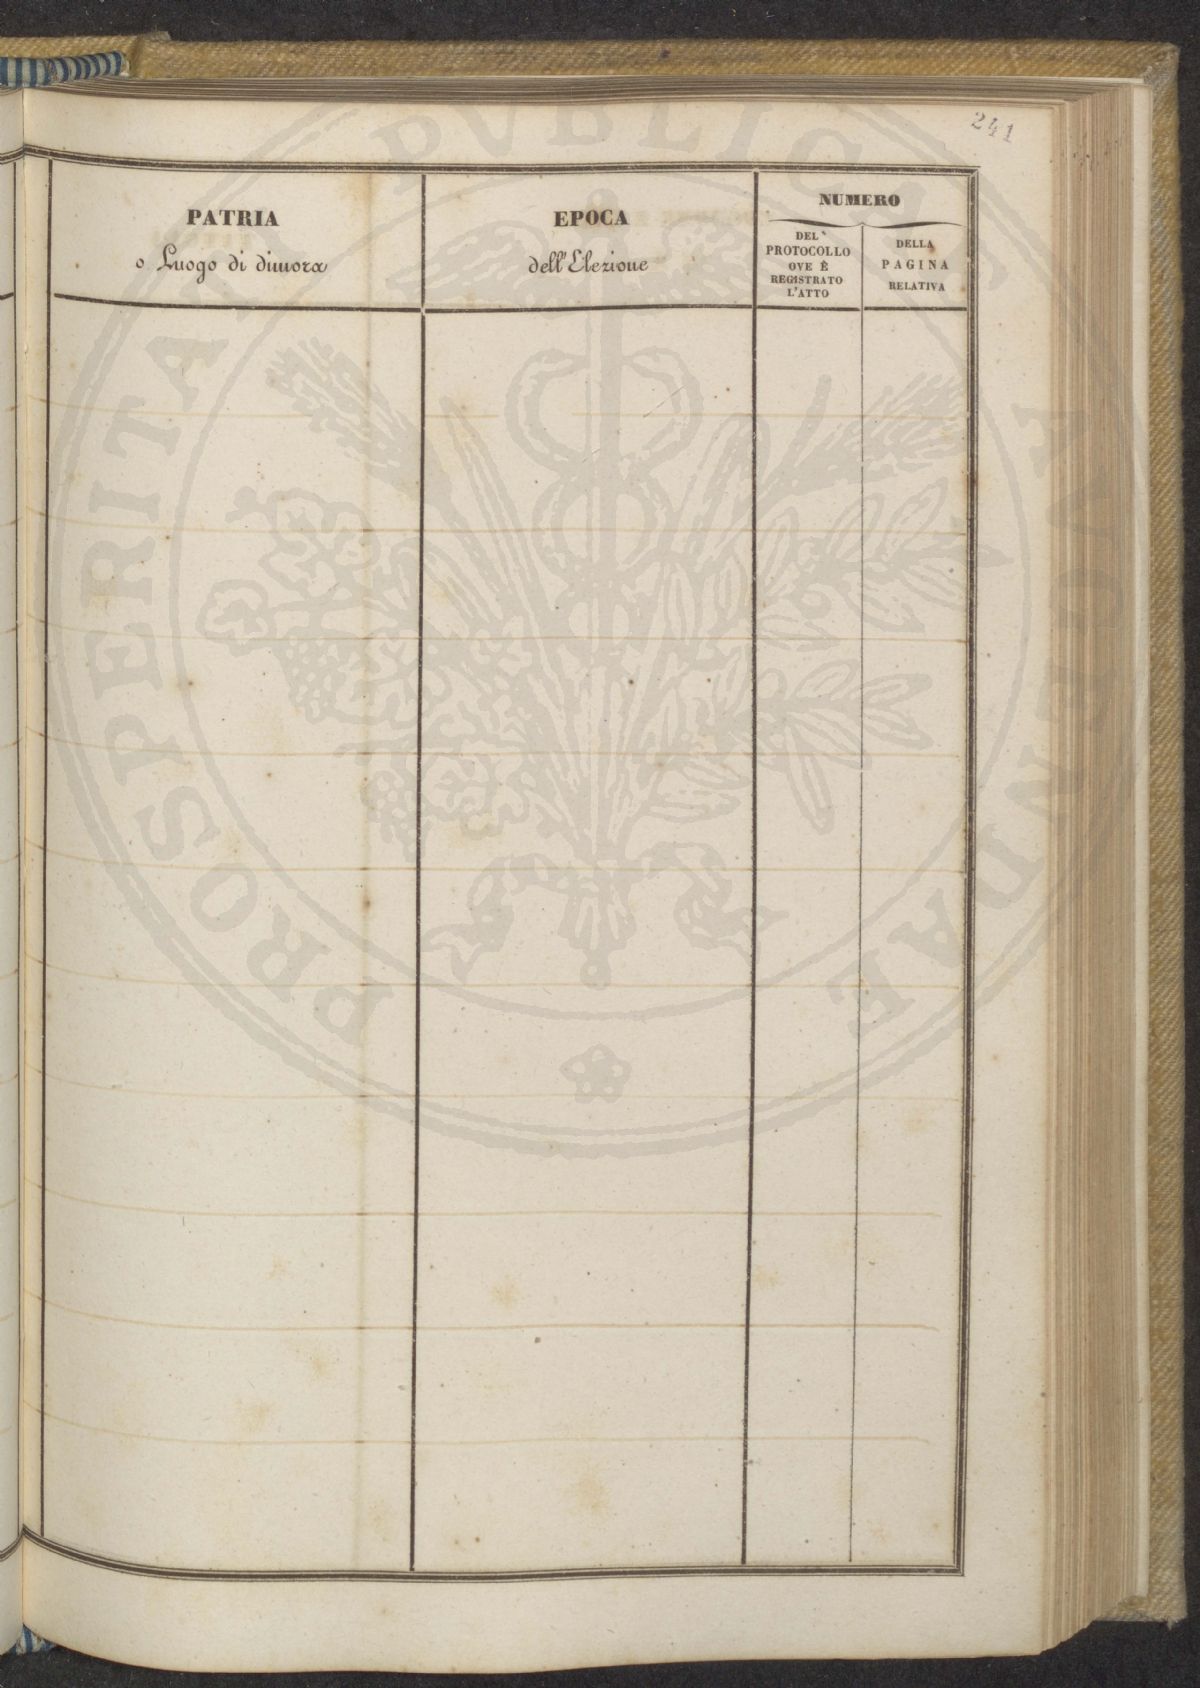 241
PATRIA
o Luogo di dimora
EPOCA
dell'Elezione
NUMERO
DEL
PROTOCOLLO
OVE È
REGISTRATO
L'ATTO
DELLA
PAGINA
RELATIVA
PROSPERITATI PVBLICAE AVGENDAE